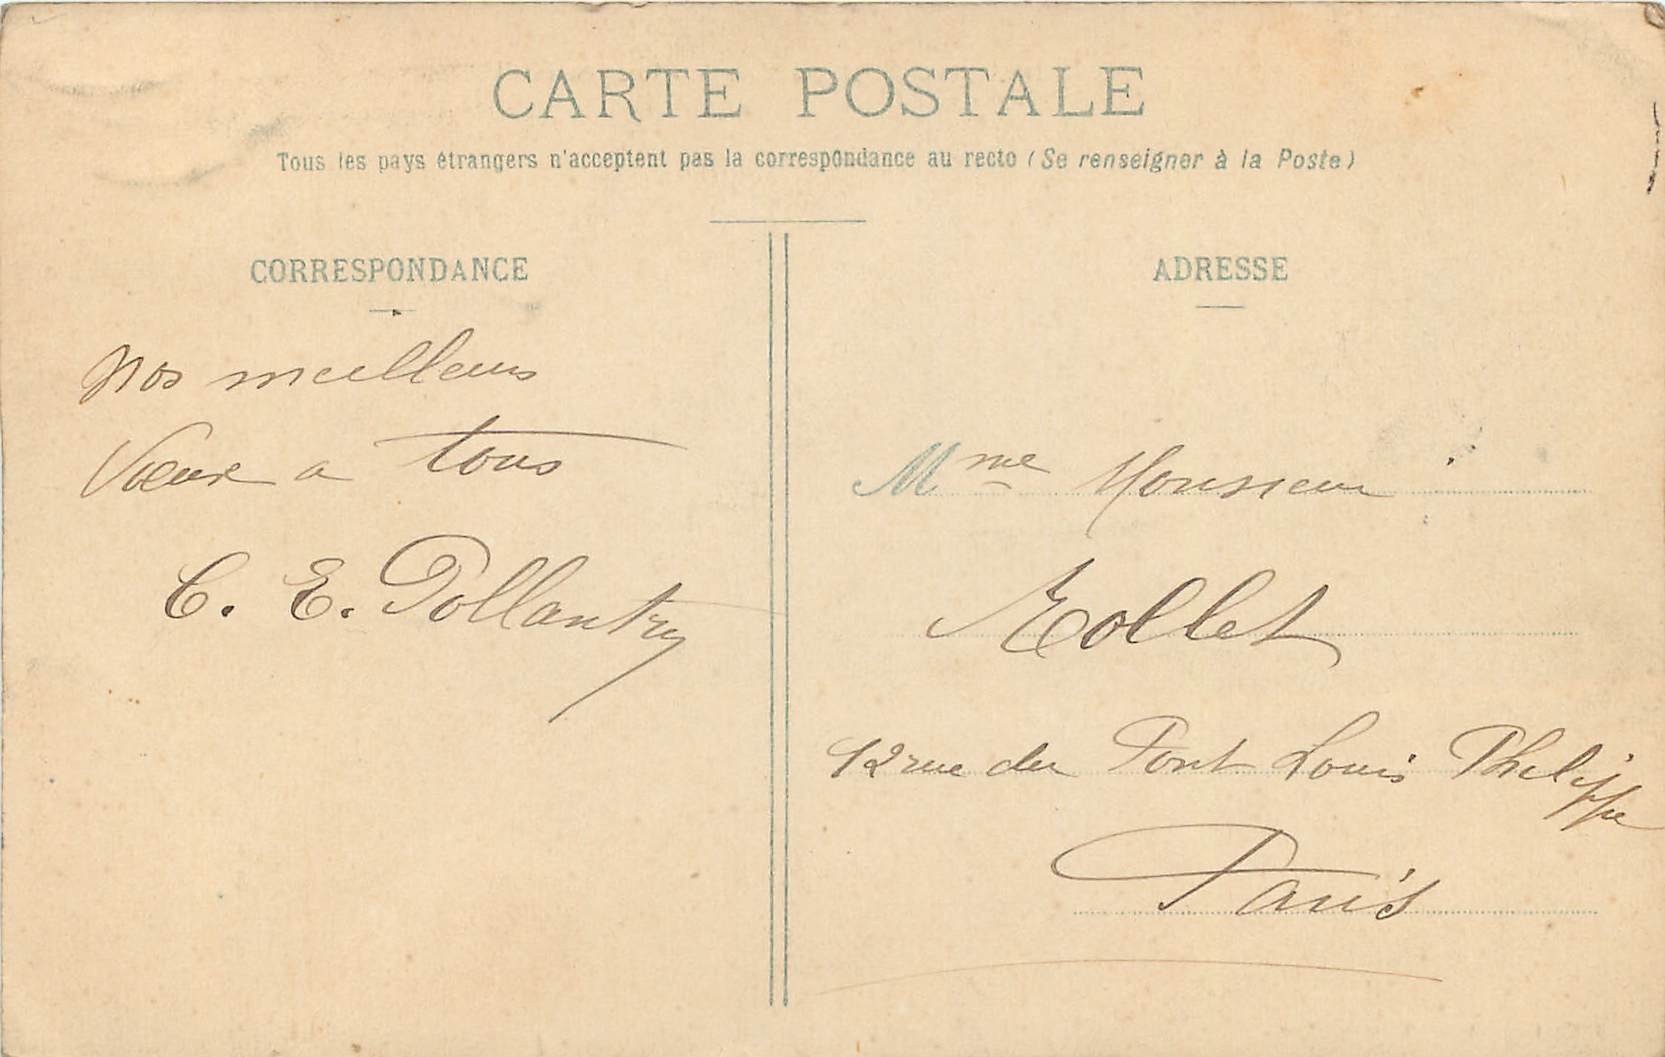 CARTE POSTALE
Tous les pays étrangers n'acceptent pas la correspondance au recto (Se renseigner à la Poste)
CORRESPONDANCE
Nos meilleurs
Vœux a tous
C. E. Pollantru
ADRESSE
Mme Monsieur
Rollet
12 rue du Pont Louis Philippe
Paris